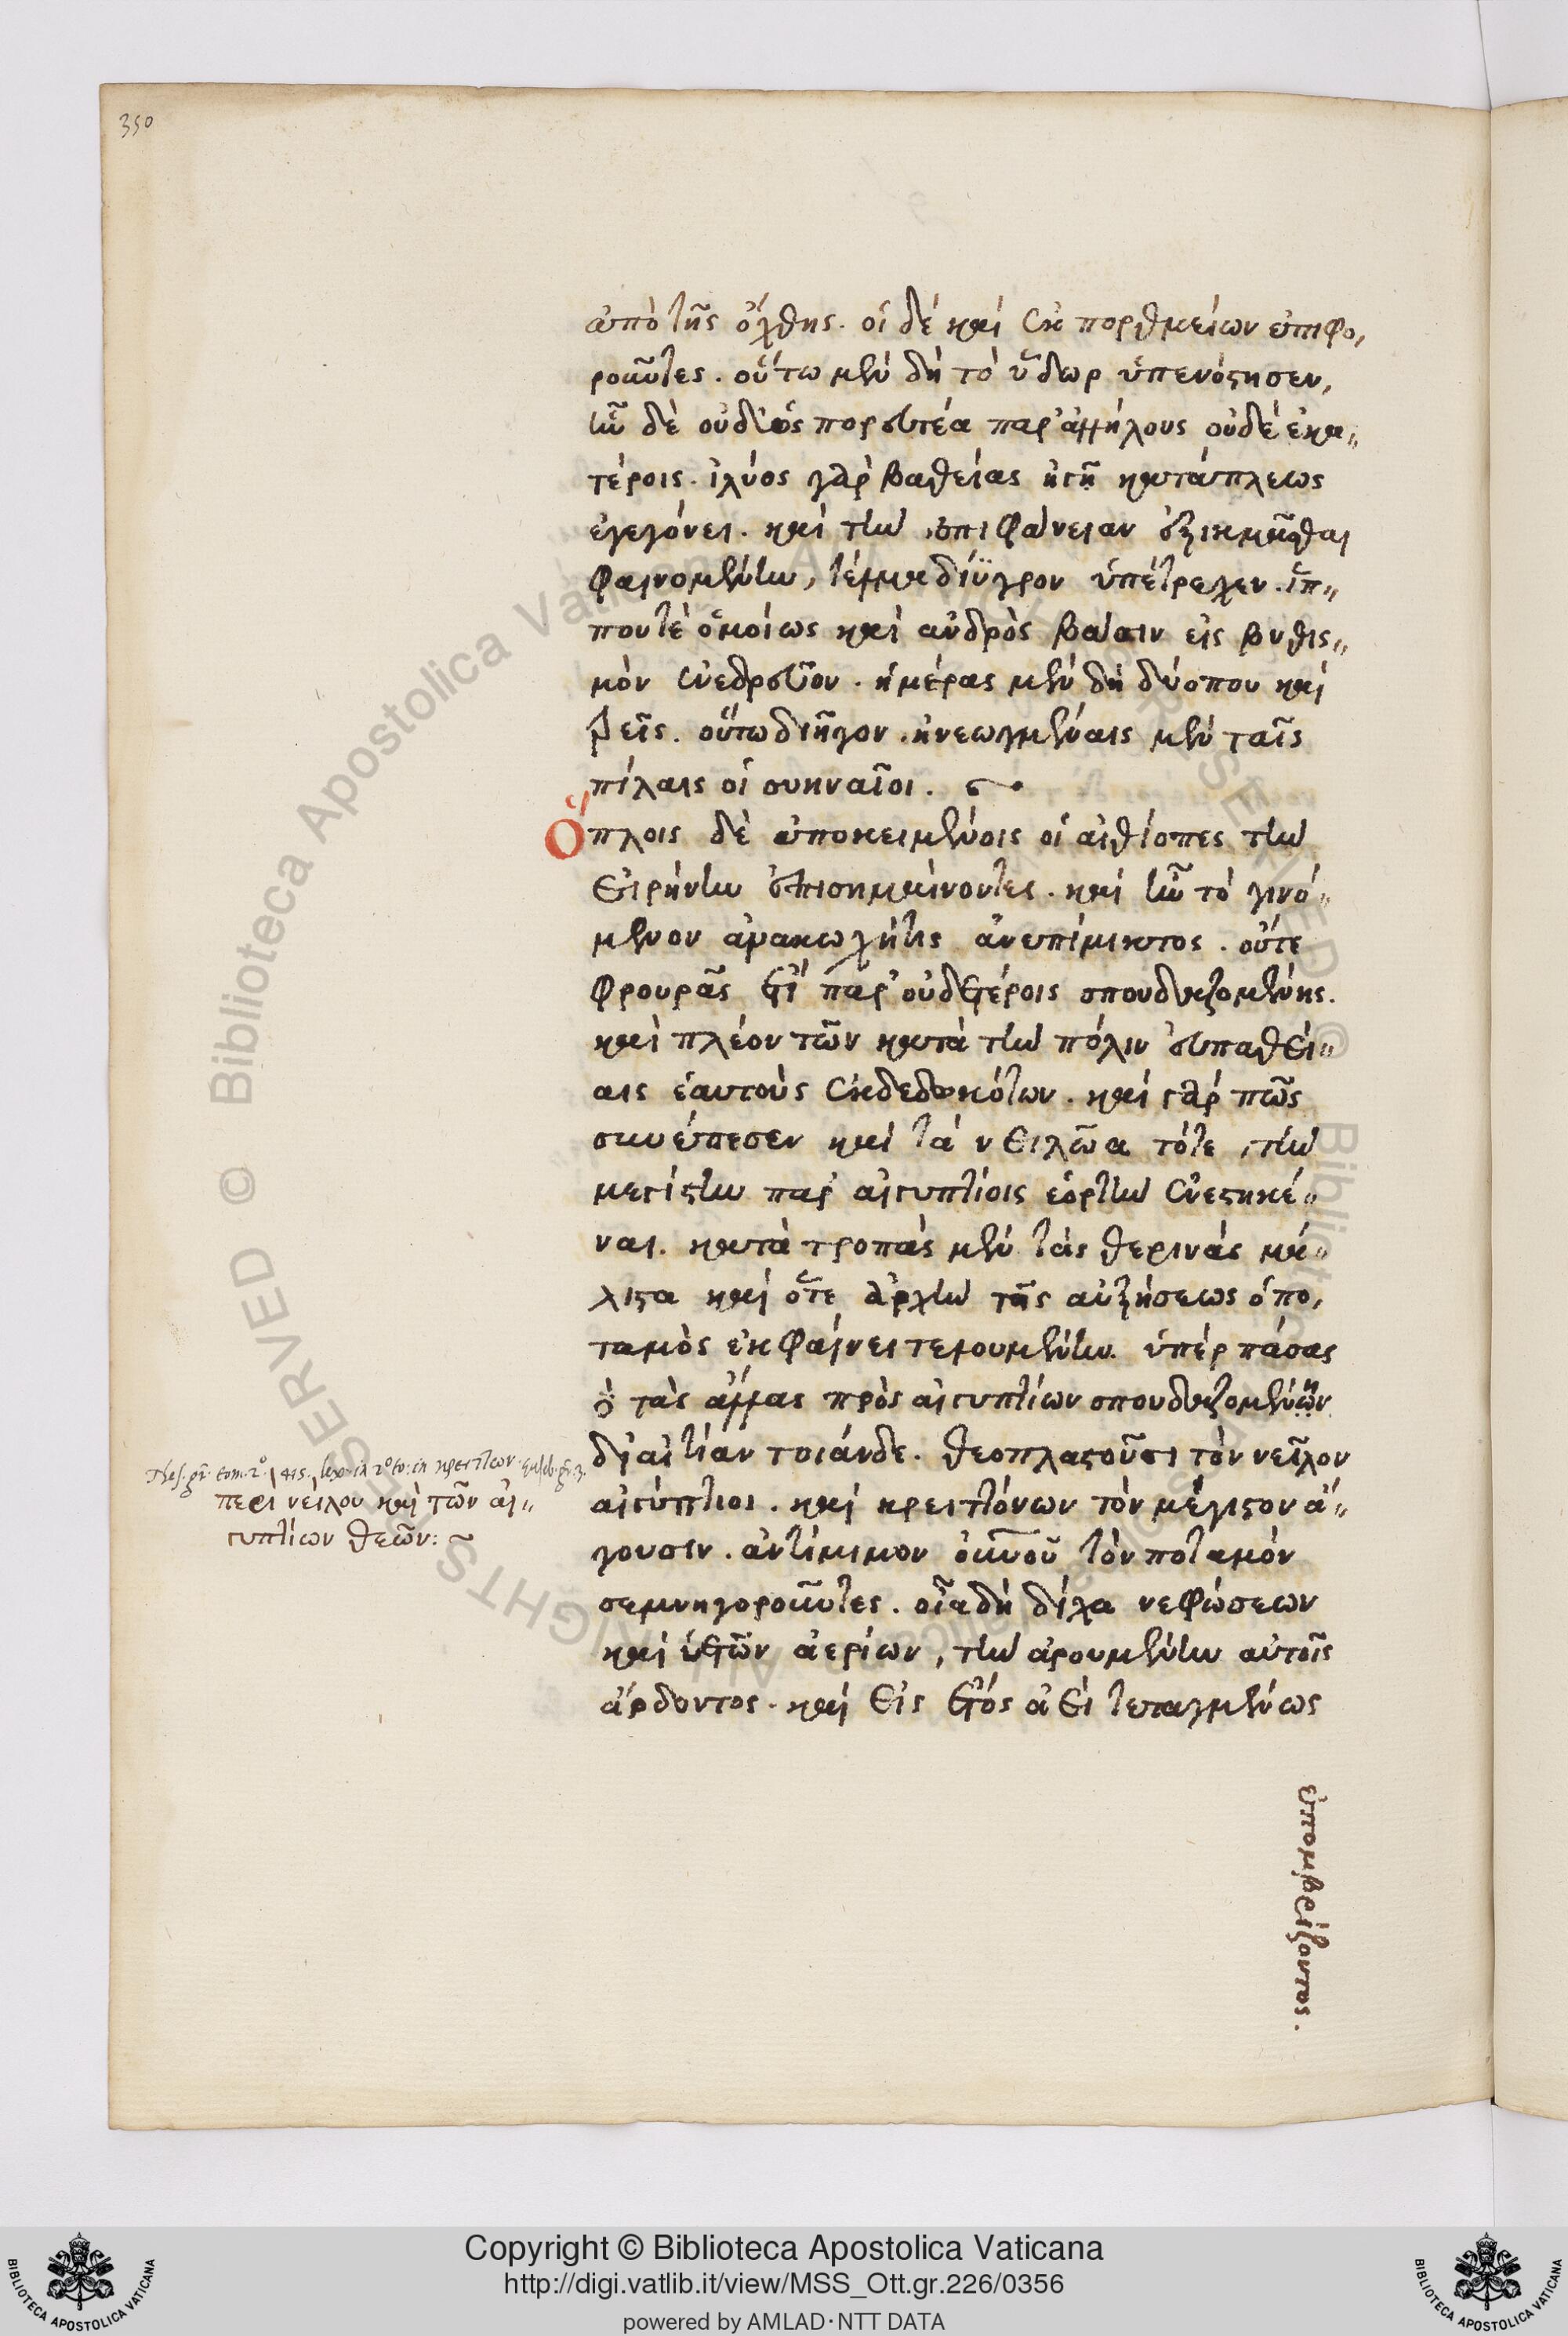 350
ἀπὸ τῆς ὄχθης. οἱ δέ καὶ ἐκ πορθμείων ἐπιφο,
ροῦντες. οὕτω μὲν δὴ τὸ ὕδωρ ὑπενόστησεν,
ἦν δὲ οὐδ' ὣς πορευτέα παρ' ἀλλήλους οὐδὲ ἑκα„
τέροις. ἰλύος γὰρ βαθείας ἡ γῆ κατάπλεως
ἐγεγόνει. καὶ τὴν ἐπιφάνειαν ἐξικμᾶσθαι
φαινομένην, τέλμα δίϋγρον ὑπέτρεχεν. ἵπ„
που τὲ ὁμοίως καὶ ἀνδρὸς βάσιν εἰς βυθις„
μὸν ἐνεδρεῦον. ἡμέρας μὲν δὴ δύο που καὶ
τρεῖς. οὕτω διῆγον. ἠνεωγμέναις μὲν ταῖς
πύλαις οἱ συηναῖοι.
Ὅπλοις δὲ ἀποκειμένοις οἱ αἰθίοπες τὴν
εἰρήνην ἐπισημαίνοντες. καὶ ἦν τὸ γινό„
μενον ἀνακωχή τις ἀνεπίμικτος. οὔτε
φρουρᾶς ἔτι παρ' οὐδετέροις σπουδαζομένης.
καὶ πλέον τῶν κατὰ τὴν πόλιν εὐπαθεί„
αις ἑαυτοὺς ἐκδεδωκότων. καὶ γάρ πως
συνέπεσεν καὶ τὰ νειλῶα τότε, τὴν
μεγίστην παρ' αἰγυπτίοις ἑορτὴν ἐνεστηκέ„
ναι. κατὰ τροπὰς μὲν τὰς θερινάς μά„
λιστα καὶ ὅτε ἀρχὴν τῆς αὐξήσεως ὁ πο,
ταμὸς ἐκφαίνει τελουμένην. ὑπὲρ πάσας
δὲ τὰς ἄλλας πρὸς αἰγυπτίων σπουδαζομένων
δι' αἰτίαν τοιάνδε. θεοπλαστοῦσι τὸν νεῖλον
αἰγύπτιοι. καὶ κρειττόνων τὸν μέγιστον ἄ„
γουσιν. ἀντίμιμον οὐρανοῦ τὸν ποταμόν
σεμνηγοροῦντες. οἷα δὴ δίχα νεφώσεων
καὶ ὑετῶν ἀερίων, τὴν ἀρουμένην αὐτοῖς
ἄρδοντος. καὶ εἰς ἔτος ἀεὶ τεταγμένως
ἐπομβρίζοντος.
περὶ νείλου καὶ τῶν αἰ„
γυπτίων θεῶν:
Copyright © Biblioteca Apostolica Vaticana
http://digi.vatlib.it/view/MSS_Ott.gr.226/0356
powered by AMLAD·NTT DATA
BIBLIOTECA APOSTOLICA VATICANA
BIBLIOTECA APOSTOLICA VATICANA